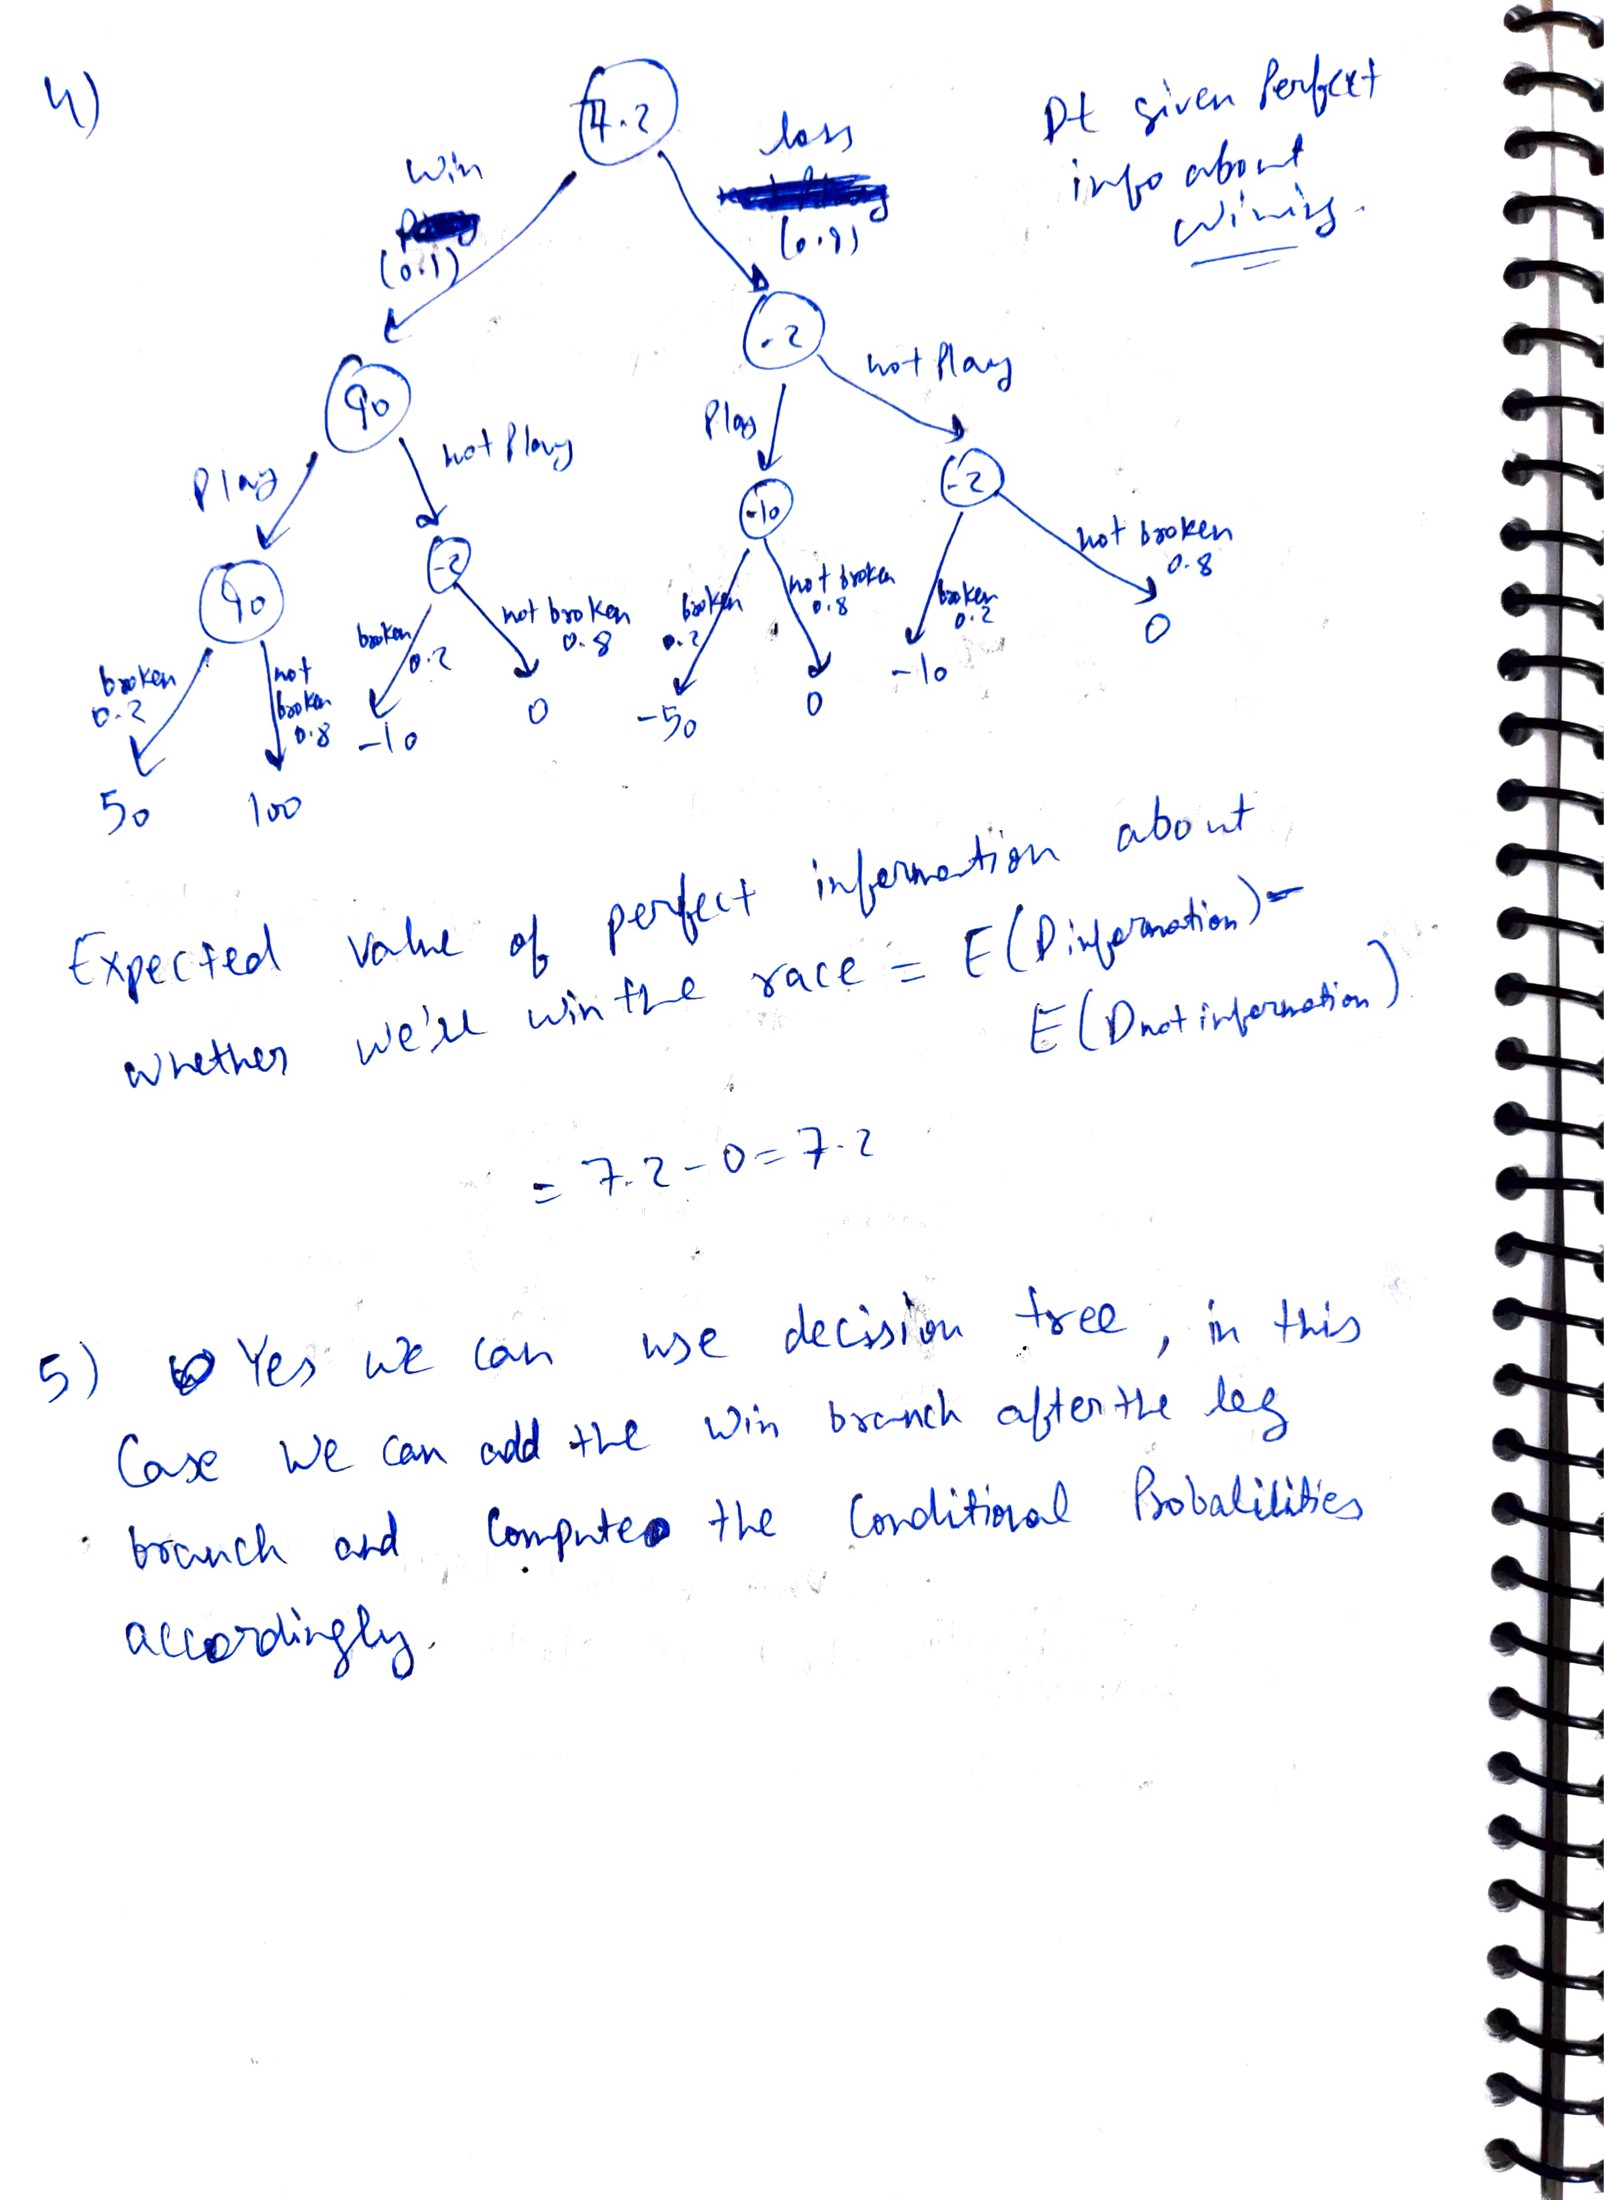 4)
7.2
Dt given Perfect
info about
wining.
win
(0.1)
loss
(0.9)
90
-2
Play
not Play
Play
not Play
90
-2
-10
-2
broken
0.2
not
broken
0.8
broken
0.2
not broken
0.8
broken
0.2
not broken
0.8
broken
0.2
not broken
0.8
50
100
-10
0
-50
0
-10
0
Expected value of perfect information about
whether we'll win the race = E(Dinformation) -
E(Dnot information)
= 7.2 - 0 = 7.2
5) Yes we can use decision tree, in this
Case We can add the win branch after the leg
branch and compute the Conditional Probalilities
accordingly.